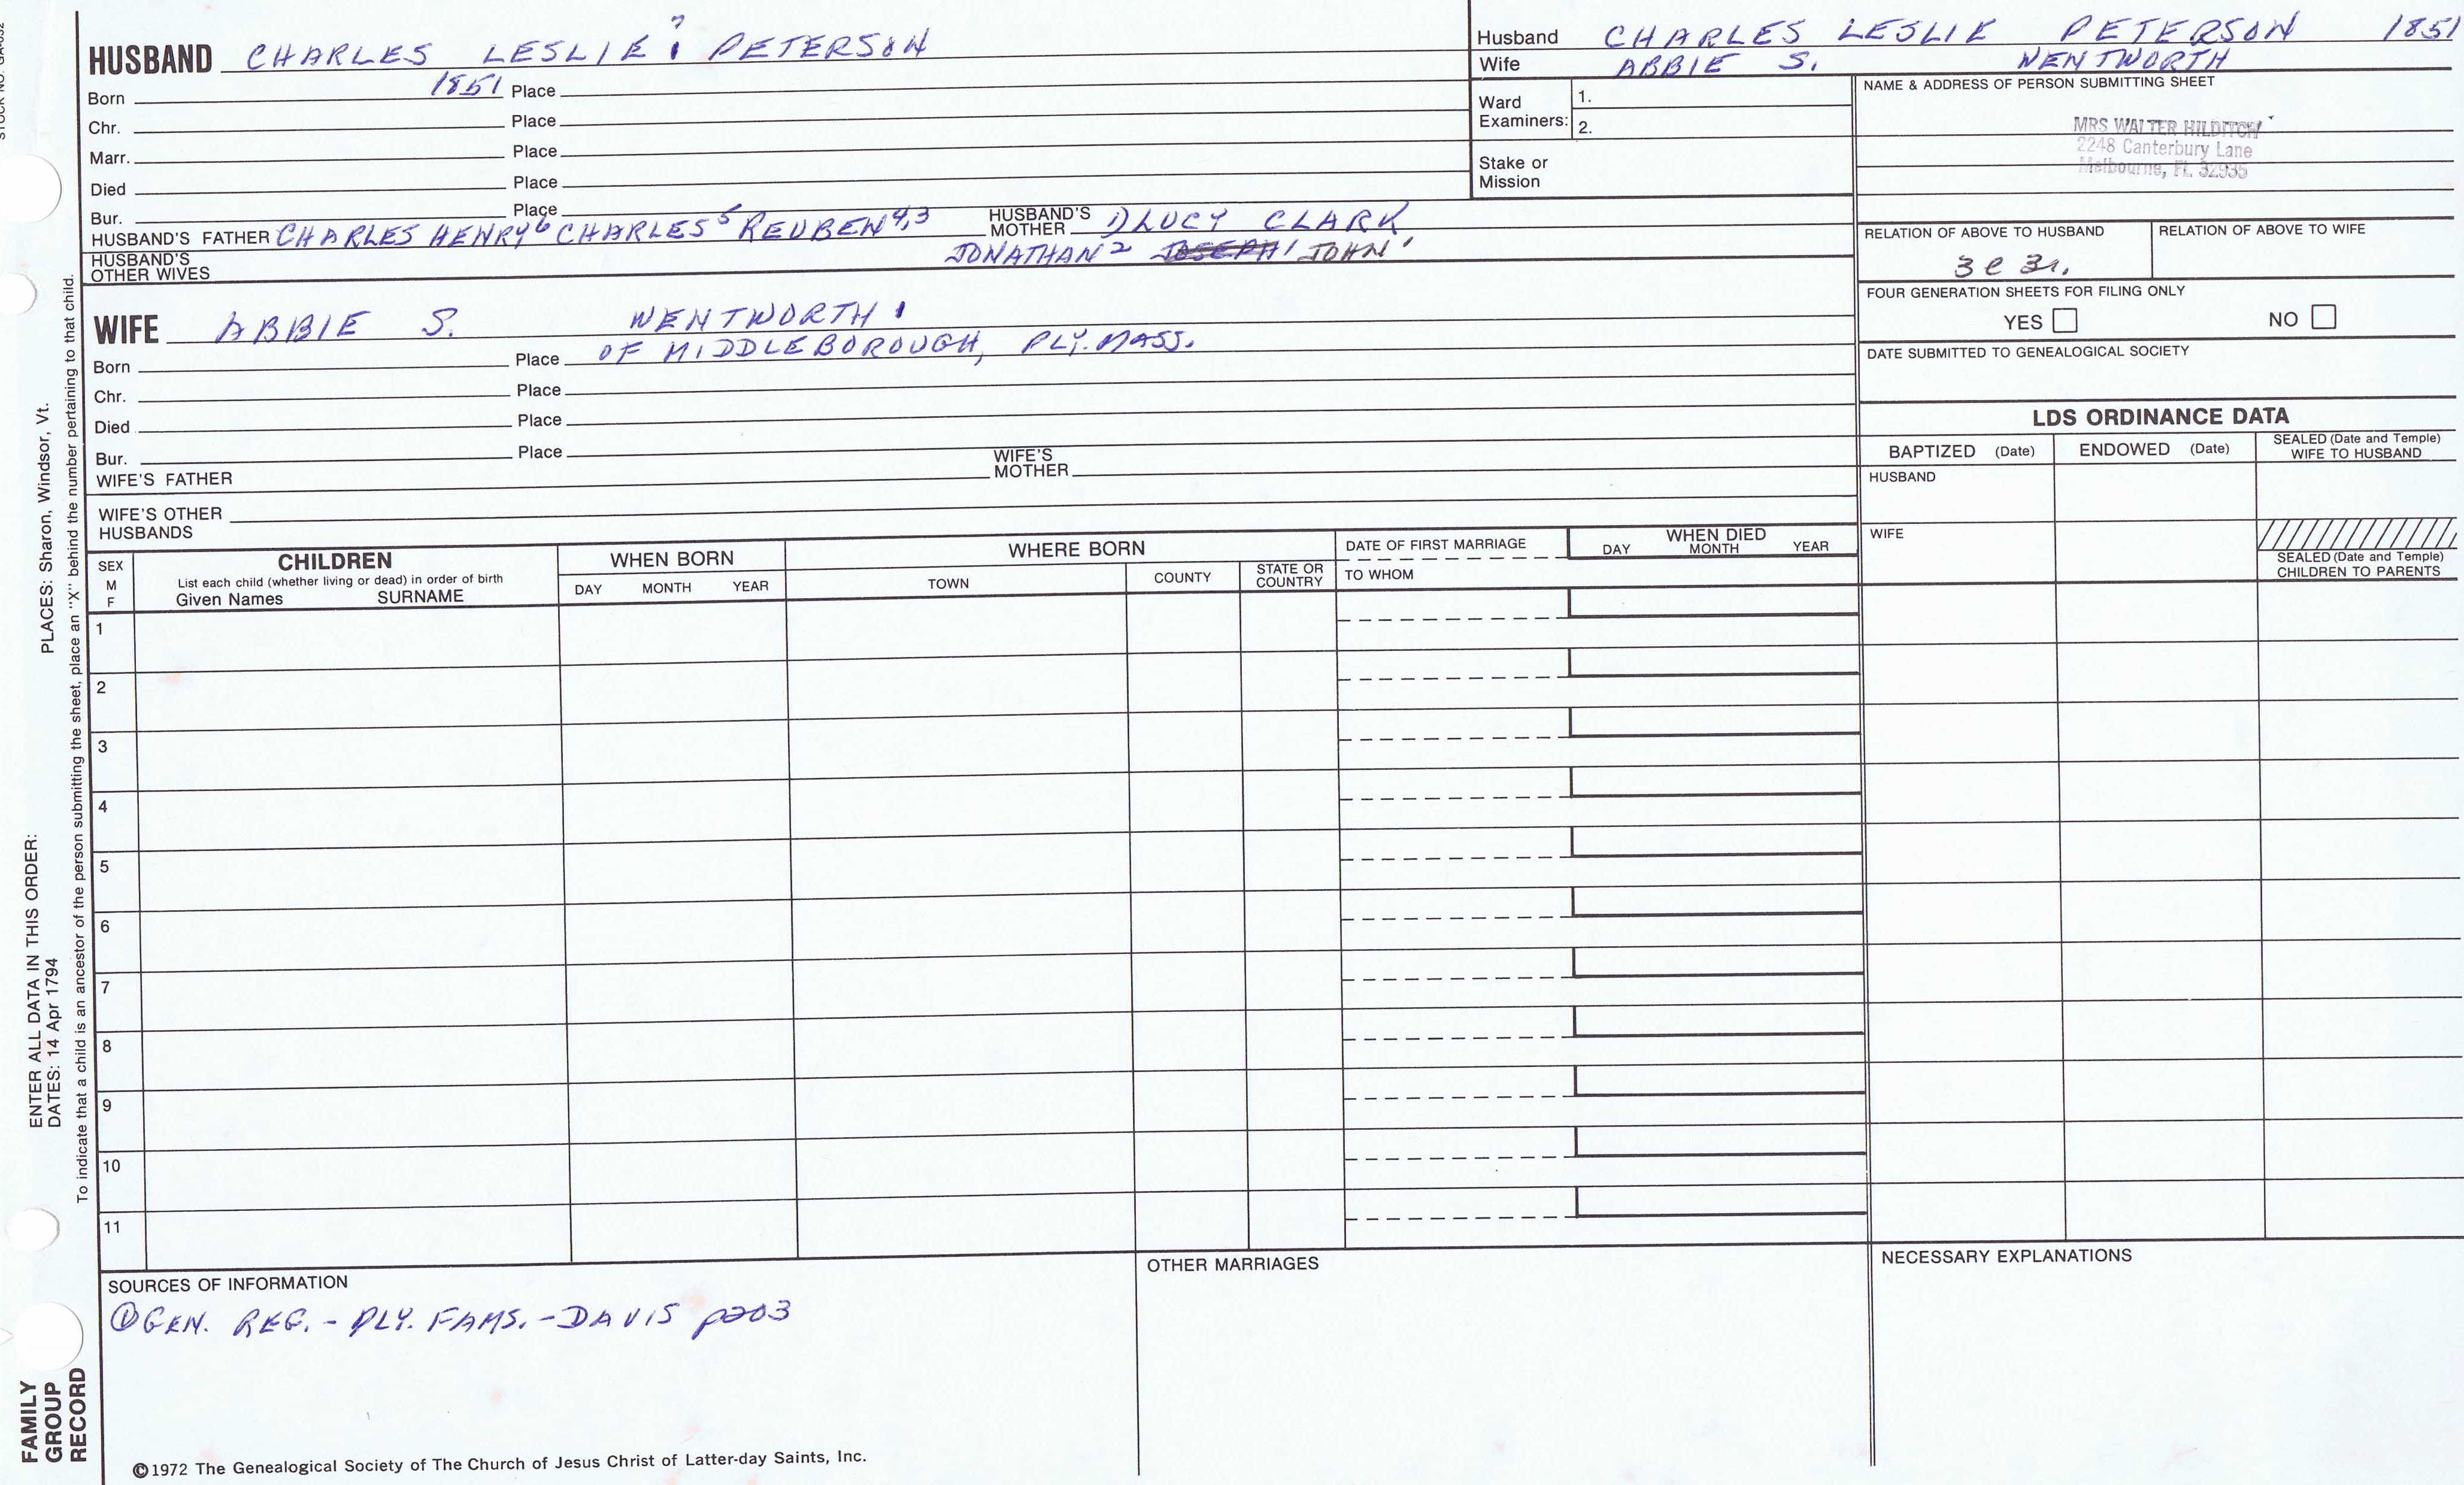 HUSBAND CHARLES LESLIE 7 1 PETERSON
Born 1851 Place
Chr. Place
Marr. Place
Died Place
Bur. Place
HUSBAND'S FATHER CHARLES HENRY6 CHARLES5 REUBEN4,3 HUSBAND'S MOTHER 1) LUCY CLARK
HUSBAND'S OTHER WIVES JONATHAN2 JOSEPH1 JOHN1
WIFE ABBIE S. WENTWORTH 1
Born Place OF MIDDLEBOROUGH, PLY. MASS.
Chr. Place
Died Place
Bur. Place
WIFE'S FATHER WIFE'S MOTHER
WIFE'S OTHER HUSBANDS
Husband CHARLES LESLIE PETERSON 1851
Wife ABBIE S. WENTWORTH
Ward Examiners: 1.
2.
Stake or Mission
NAME & ADDRESS OF PERSON SUBMITTING SHEET
MRS WALTER HILDITCH
2248 Canterbury Lane
Melbourne, FL 32935
RELATION OF ABOVE TO HUSBAND RELATION OF ABOVE TO WIFE
3c 3r.
FOUR GENERATION SHEETS FOR FILING ONLY
YES NO
DATE SUBMITTED TO GENEALOGICAL SOCIETY
LDS ORDINANCE DATA
BAPTIZED (Date) ENDOWED (Date) SEALED (Date and Temple) WIFE TO HUSBAND
HUSBAND
WIFE
SEALED (Date and Temple) CHILDREN TO PARENTS
SEX M F
CHILDREN
List each child (whether living or dead) in order of birth
Given Names SURNAME
WHEN BORN
DAY MONTH YEAR
WHERE BORN
TOWN COUNTY STATE OR COUNTRY
DATE OF FIRST MARRIAGE
TO WHOM
WHEN DIED
DAY MONTH YEAR
1
2
3
4
5
6
7
8
9
10
11
SOURCES OF INFORMATION
① GEN. REG. - PLY. FAMS. - DAVIS p203
OTHER MARRIAGES
NECESSARY EXPLANATIONS
©1972 The Genealogical Society of The Church of Jesus Christ of Latter-day Saints, Inc.
STOCK NO.
ENTER ALL DATA IN THIS ORDER:
DATES: 14 Apr 1794 PLACES: Sharon, Windsor, Vt.
To indicate that a child is an ancestor of the person submitting the sheet, place an "X" behind the number pertaining to that child.
FAMILY
GROUP
RECORD